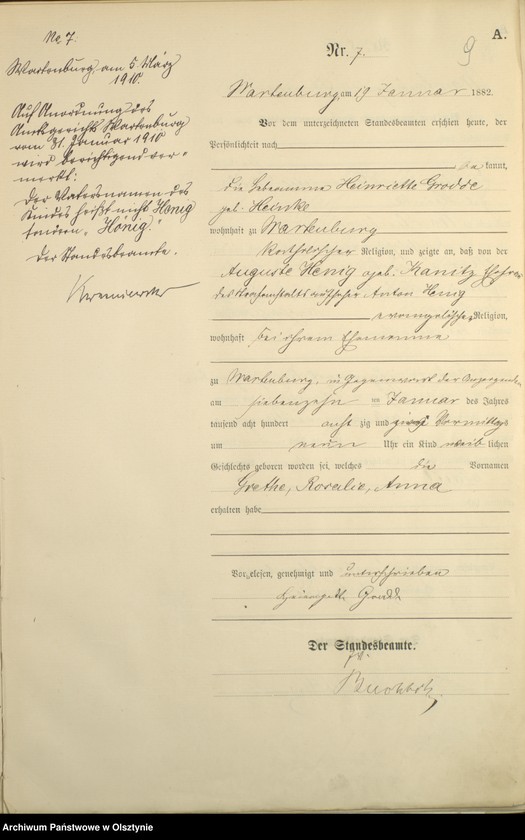 A.
9
No 7.
Wartenburg, am 5 März
1910.
Auf Anordnung des
Amtsgerichts Wartenburg
vom 31. Januar 1910
wird berichtigend ver=
merkt:
Der Vatersnamen des
Kindes heißt nicht Henig
sondern "Hönig."
Der Standesbeamte.
Nr. 7.
Wartenburg, am 19 Januar 1882.
Vor dem unterzeichneten Standesbeamten erschien heute, der
Persönlichkeit nach
be kannt,
die Hebamme Heinriette Grodde
geb. Heinke
wohnhaft zu Wartenburg
katholischer Religion, und zeigte an, daß von der
Auguste Henig geb. Kanitz, Ehefrau
des Strafanstaltsaufseher Anton Henig
evangelischer Religion,
wohnhaft bei ihrem Ehemanne
zu Wartenburg in Gegenwart der Anzeigenden
am siebenzehn ten Januar des Jahres
tausend acht hundert acht zig und zwei Vormittags
um neun Uhr ein Kind weib lichen
Geschlechts geboren worden sei, welches die Vornamen
Grethe, Rosalie, Anna
erhalten habe
Vorgelesen, genehmigt und unterschrieben
Grodde
Der Standesbeamte.
Archiwum Państwowe w Olsztynie